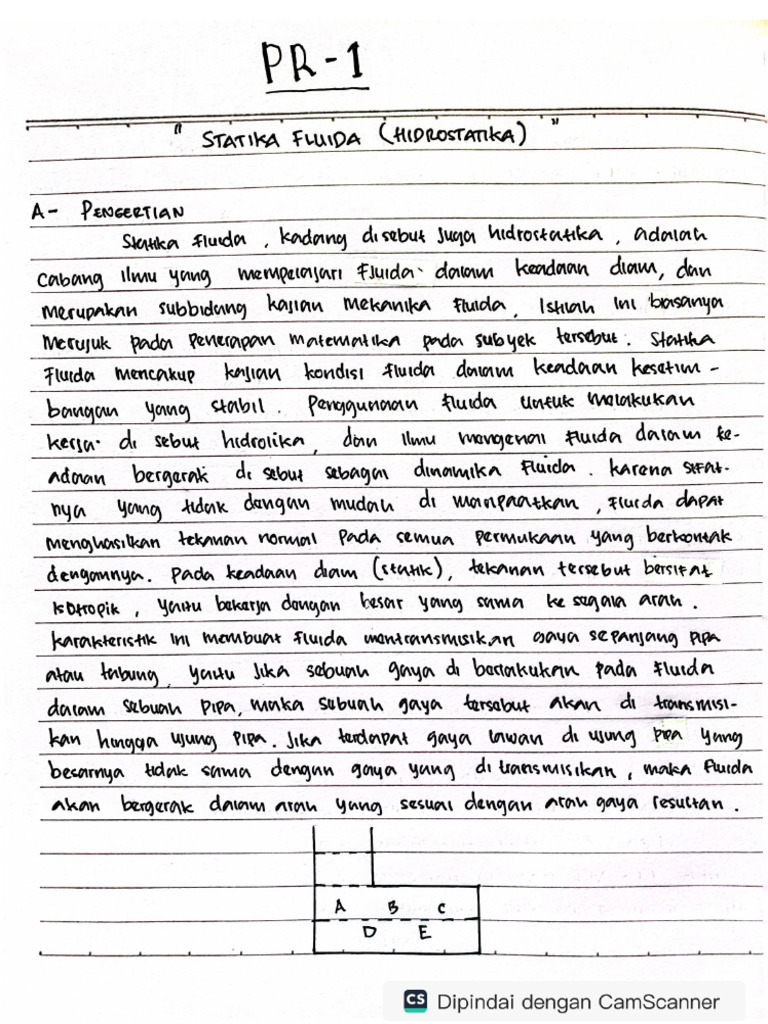 PR-1
" STATIKA FLUIDA (HIDROSTATIKA) "
A- PENGERTIAN
Statika fluida, kadang disebut juga hidrostatika, adalah
cabang ilmu yang mempelajari fluida dalam keadaan diam, dan
merupakan subbidang kajian mekanika fluida. Istilah ini biasanya
merujuk pada penerapan matematika pada subyek tersebut. Statika
fluida mencakup kajian kondisi fluida dalam keadaan kesetim-
bangan yang stabil. Penggunaan fluida untuk melakukan
kerja di sebut hidrolika, dan ilmu mengenai fluida dalam ke-
adaan bergerak di sebut sebagai dinamika fluida. Karena sifat-
nya yang tidak dengan mudah di manpaatkan, fluida dapat
menghasilkan tekanan normal pada semua permukaan yang berkontak
dengannya. Pada keadaan diam (statik), tekanan tersebut bersifat
isotropik, yaitu bekerja dengan besar yang sama ke segala arah.
Karakteristik ini membuat fluida mentransmisikan gaya sepanjang pipa
atau tabung, yaitu jika sebuah gaya di berlakukan pada fluida
dalam sebuah pipa, maka sebuah gaya tersebut akan di transmisi-
kan hingga ujung pipa. Jika terdapat gaya lawan di ujung pipa yang
besarnya tidak sama dengan gaya yang di transmisikan, maka fluida
akan bergerak dalam arah yang sesuai dengan arah gaya resultan.
A B C
D E
CS Dipindai dengan CamScanner